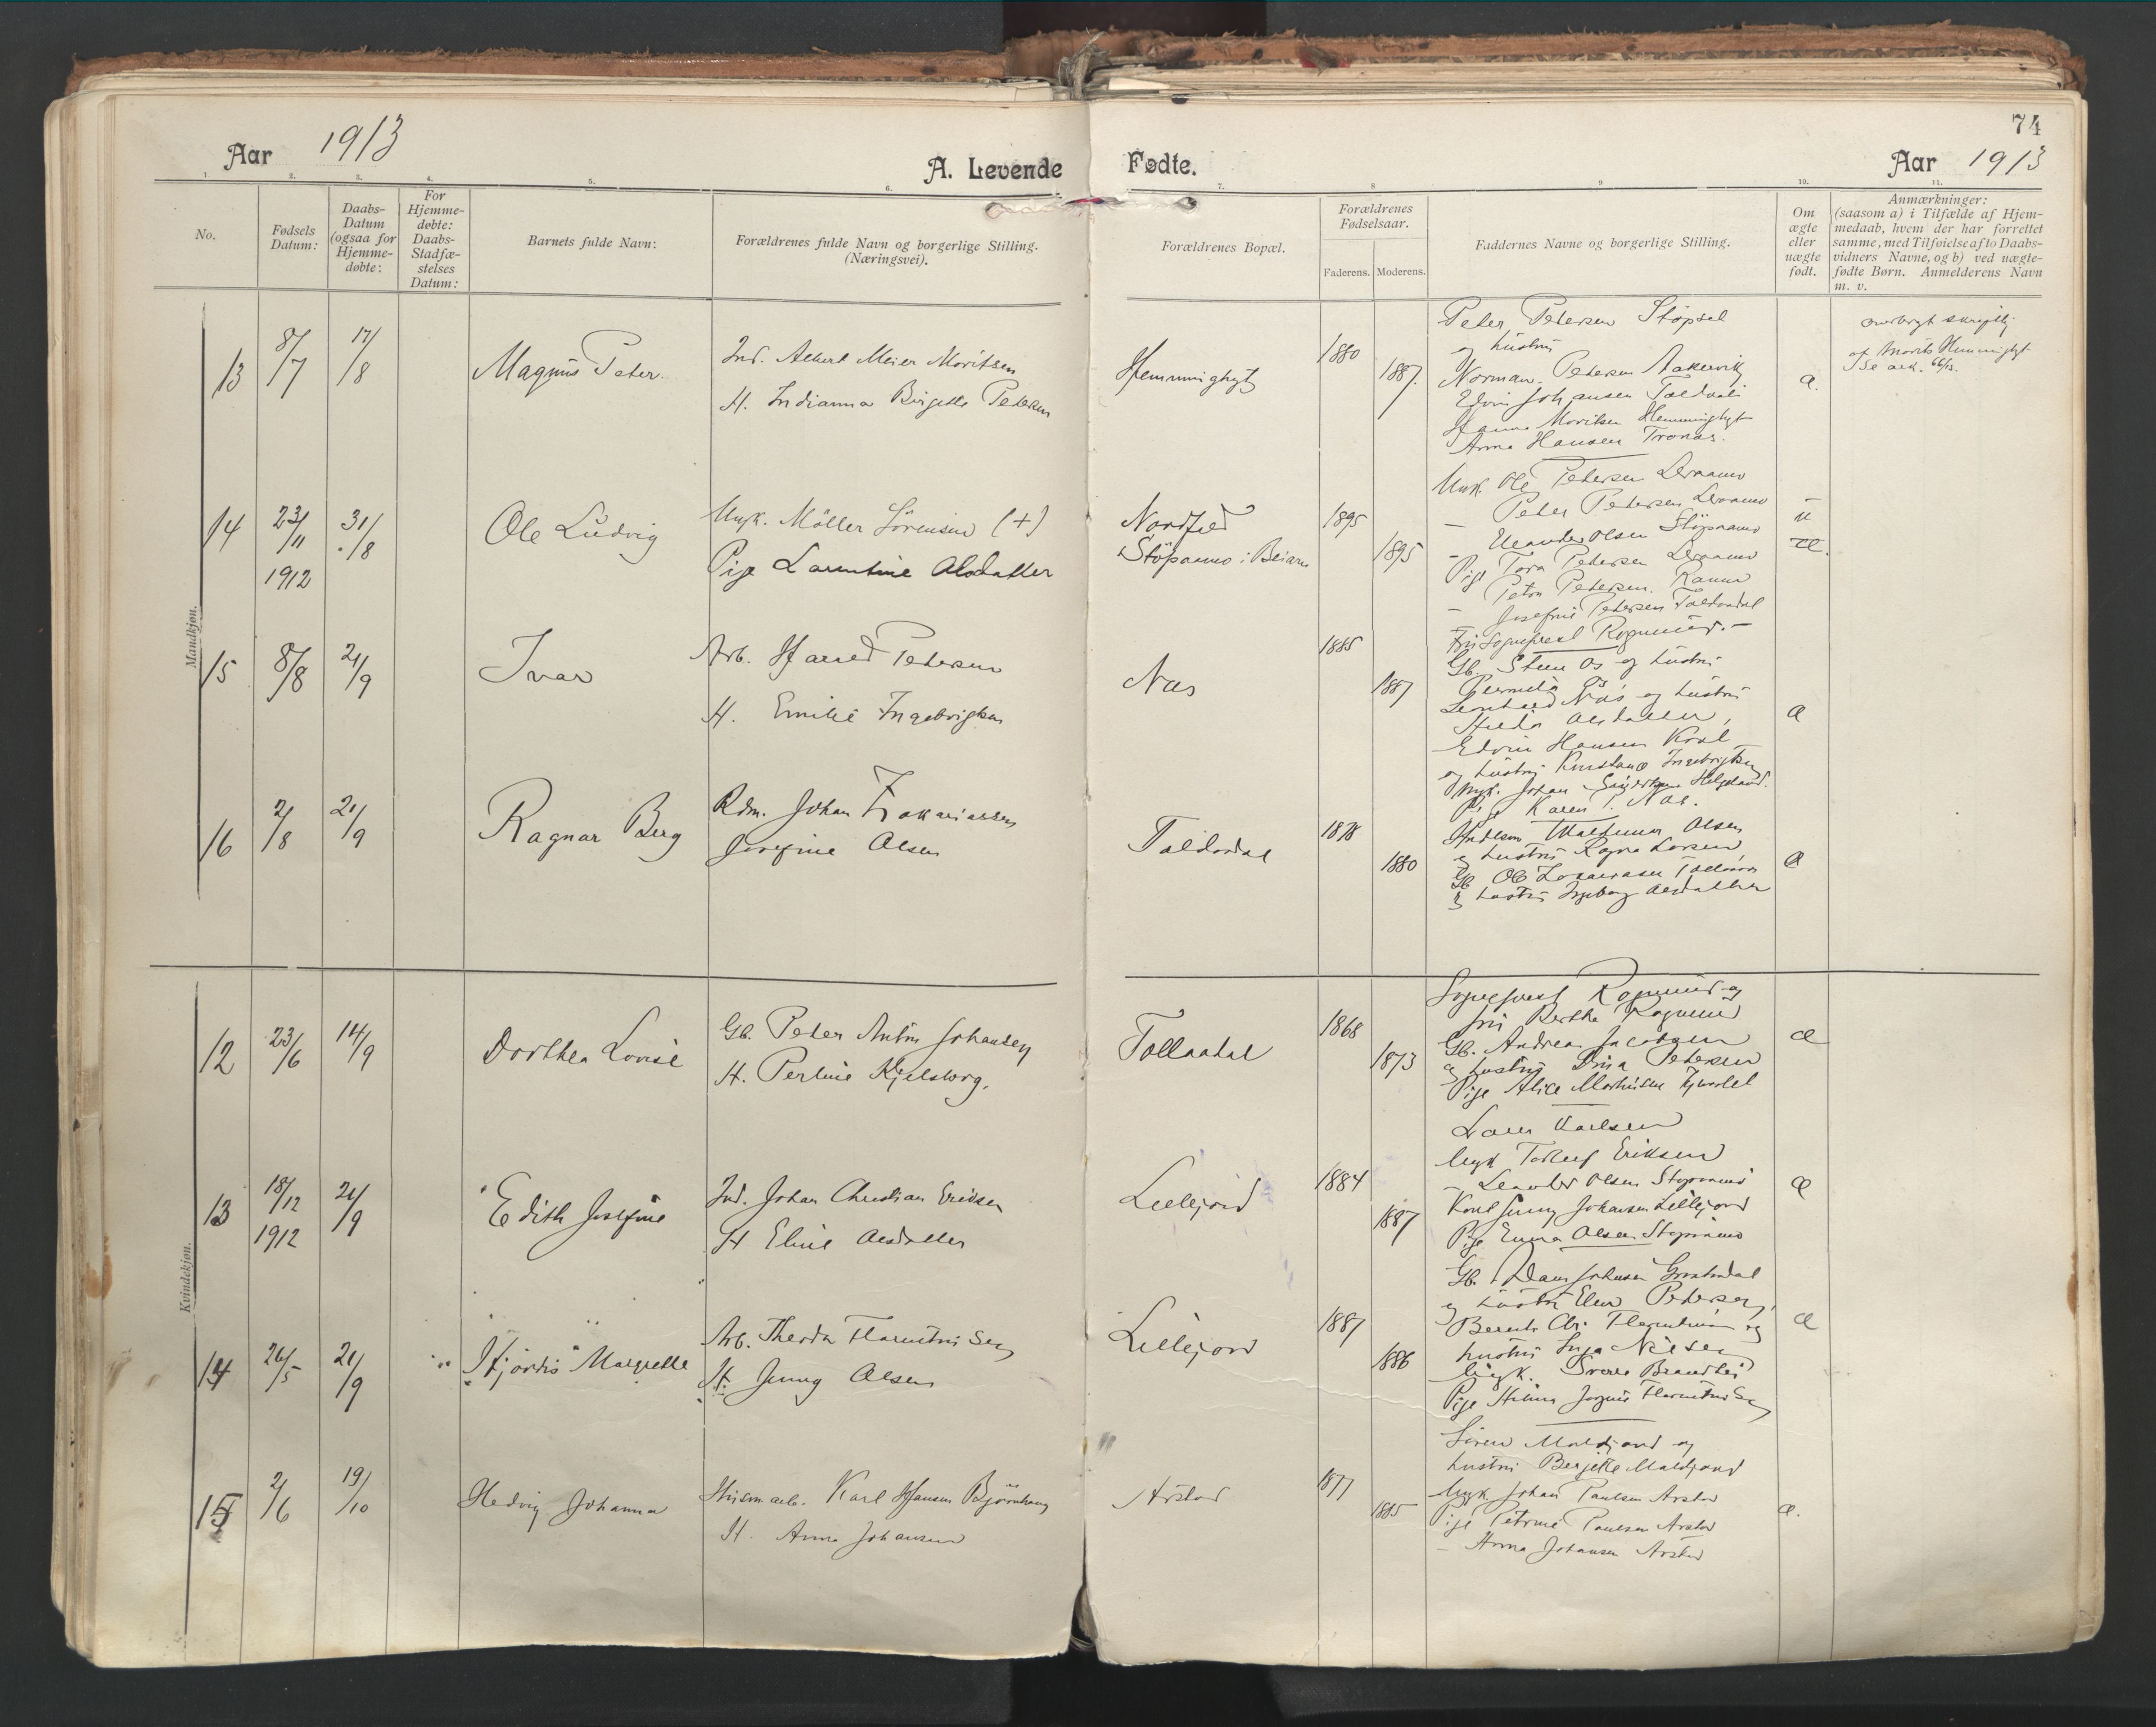 74
Aar 1913
A. Levende Fødte.
Aar 1913
1. 2. 3. 4. 5. 6. 7. 8 9 10. 11.
No.
Fødsels Datum:
Daabs-Datum (ogsaa for Hjemme-døbte:
For Hjemme-døbte: Daabs-Stadfæ-stelses Datum:
Barnets fulde Navn:
Forældrenes fulde Navn og borgerlige Stilling.
(Næringsvei).
Forældrenes Bopæl.
Forældrenes Fødselsaar.
Faderens. Moderens.
Faddernes Navne og borgerlige Stilling.
Om ægte eller uægte født.
Anmærkninger:
(saasom a) i Tilfælde af Hjem-
medaab, hvem der har forrettet
samme, med Tilføielse af to Daabs-
vidners Navne, og b) ved uægte-
fødte Børn. Anmelderens Navn
m. v.
Mandkjøn.
13 8/7 17/8 Magnus Peter.
Ind. Albert Meier Moritsen
H. Indianna Birgitte Petersen
Hemminghyt 1880 1887.
Peter Petersen Stöpsel
og hustru
Norman Petersen Aakervik
Edvin Johansen Toldnäs
Hanna Moritsen Hemminghyt
Anna Hansen Tronäs.
a.
skriftlig
af Morits Hemminghyt
Se ark. 66/13.
14 23/11 1912 31/8 Ole Ludvig
Ungk. Möller Sörensen (+)
Pige Larentine Olsdatter
Nordfjed
Stöpaamo i Beiarn
1895 1895
Ungk. Ole Petersen Leraamo
— Peter Petersen Leraamo
— Leander Olsen Stöpaamo
Pige Tora Petersen Leraamo
— Petra Petersen
— Josefine Petersen Toldaadal
— u æ.
15 8/8 21/9 Ivar
Arb. Harald Petersen
H. Emilie Ingebrigtsen
Næs 1885 1887
Fru Sogneprest Rognmid. —
Gb. Steen Os og hustru
Pernille Os
Leonhard Næs og hustru
Hilda Olsdatter,
Edvin Hansen
og hustru Konstance Ingebrigtsen
Ungk. Johan Helgeland.
Pige Karen P. Næs.
a
16 2/8 21/9 Ragnar Berg
Rdm. Johan Zakariassen
Josefine Olsen
Toldaadal 1878 1880
Handelsm Waldemar Olsen
og hustru Ragna Larsen,
Gb Ole Zakariasen Toldaa
og hustru Ingeborg Olsdatter
a
Kvindekjøn.
12 23/6 14/9 Dorthea Lovise
Gb. Peter Anton Johansen
H. Perline Kjelsborg.
Tollaadal 1868 1873
Sogneprest Rognmid og
fru Berthe Rognmid
Gb. Andreas Jacobsen
og hustru Petersen
Pige Alice Marthinsen
Æ
13 18/12 1912 21/9 Edith Josefine
Ind. Johan Christian Eriksen
H Eline Olsdatter
Lillejord 1884 1887
Laur Karlsen
Ungk Torleif Eriksen
— Leander Olsen Stöpaamo
Kone Jenny Johansen Lillejord
Pige Emma Olsen Stöpaamo
Æ
14 26/5 21/9 Hjördis Margrethe
Arb. Theodor Florentinsen
H. Jenny Olsen
Lillejord 1887 1886
Gb. Johnsen
og hustru Elen Petersen,
Berent Chr. Florentinsen og
hustru Inga Nilsen
Ungk. Sverre
Pige Florentinsen
Æ
15 2/6 19/10 Hedvig Johanna
Husm. arb. Karl Hansen Björnhaug
H. Anna Johansen
Arstad 1877 1885
Sören Moldjord og
hustru Bergitte Moldjord
Ungk Johan Paulsen Arstad
Pige Petrine Paulsen Arstad
— Anna Johansen Arstad
a.